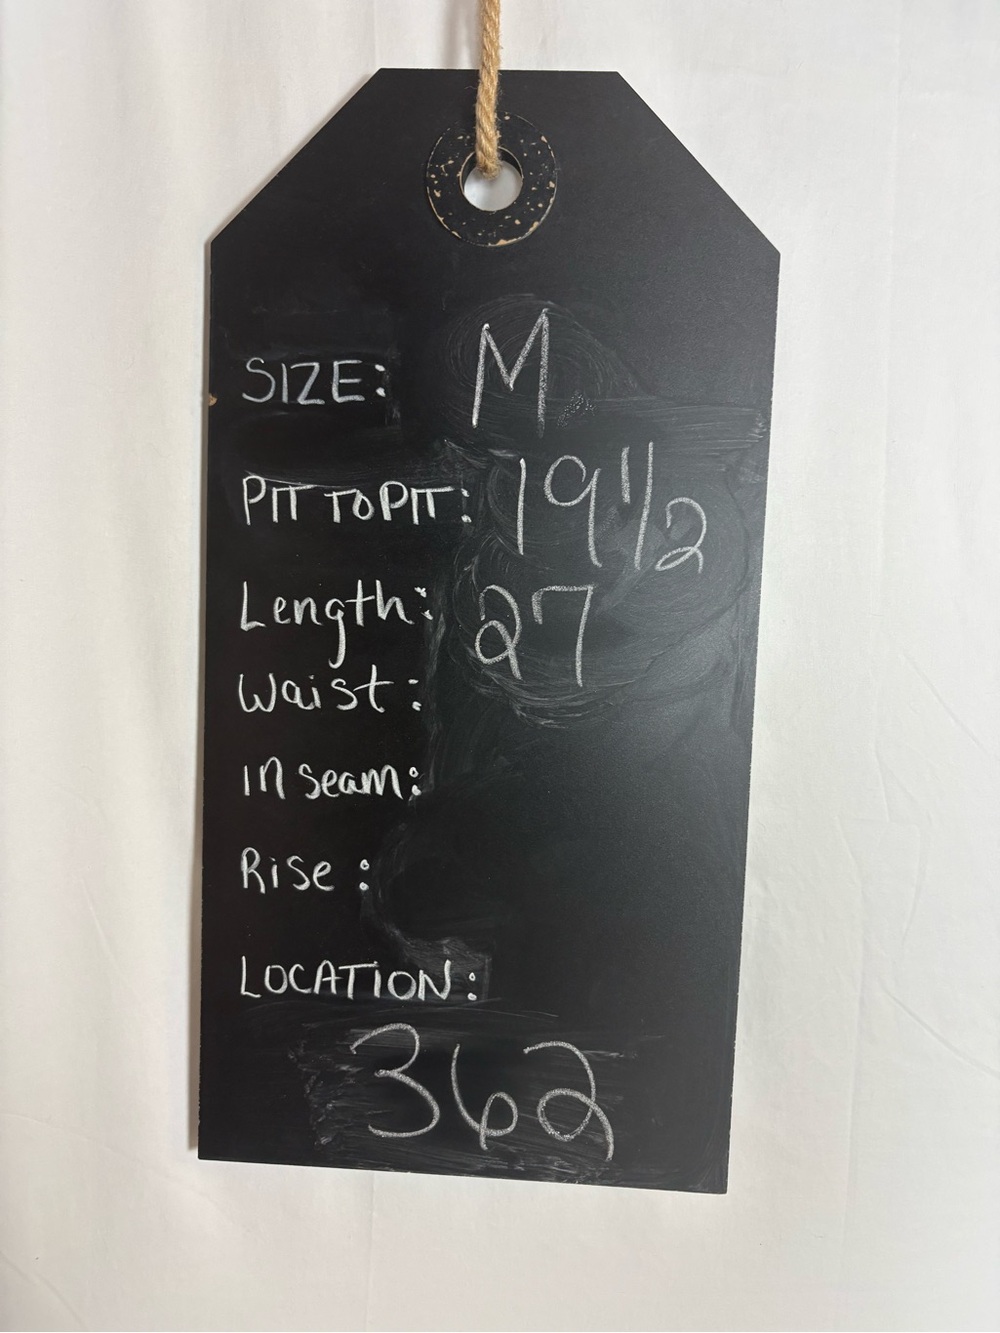 SIZE: M
PIT TO PIT: 19 1/2
Length: 27
Waist:
inseam:
Rise:
LOCATION:
362